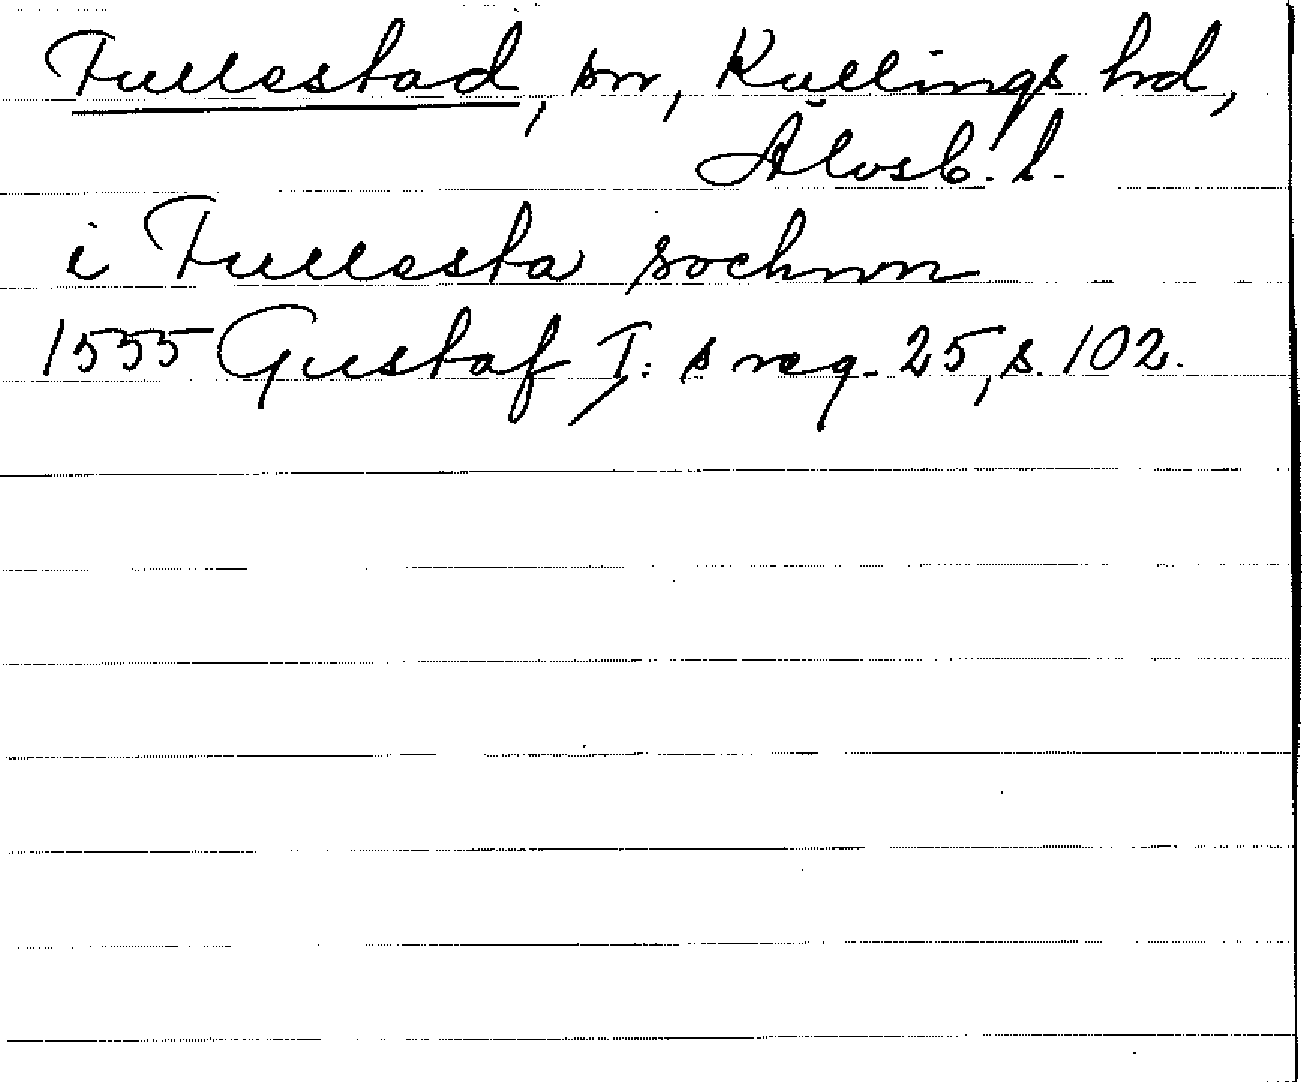 Fullestad, sn, Kullings hd,
Älvsb. l.
i Fullesta sochnn
1555 Gustaf I: s reg. 25, s. 102.